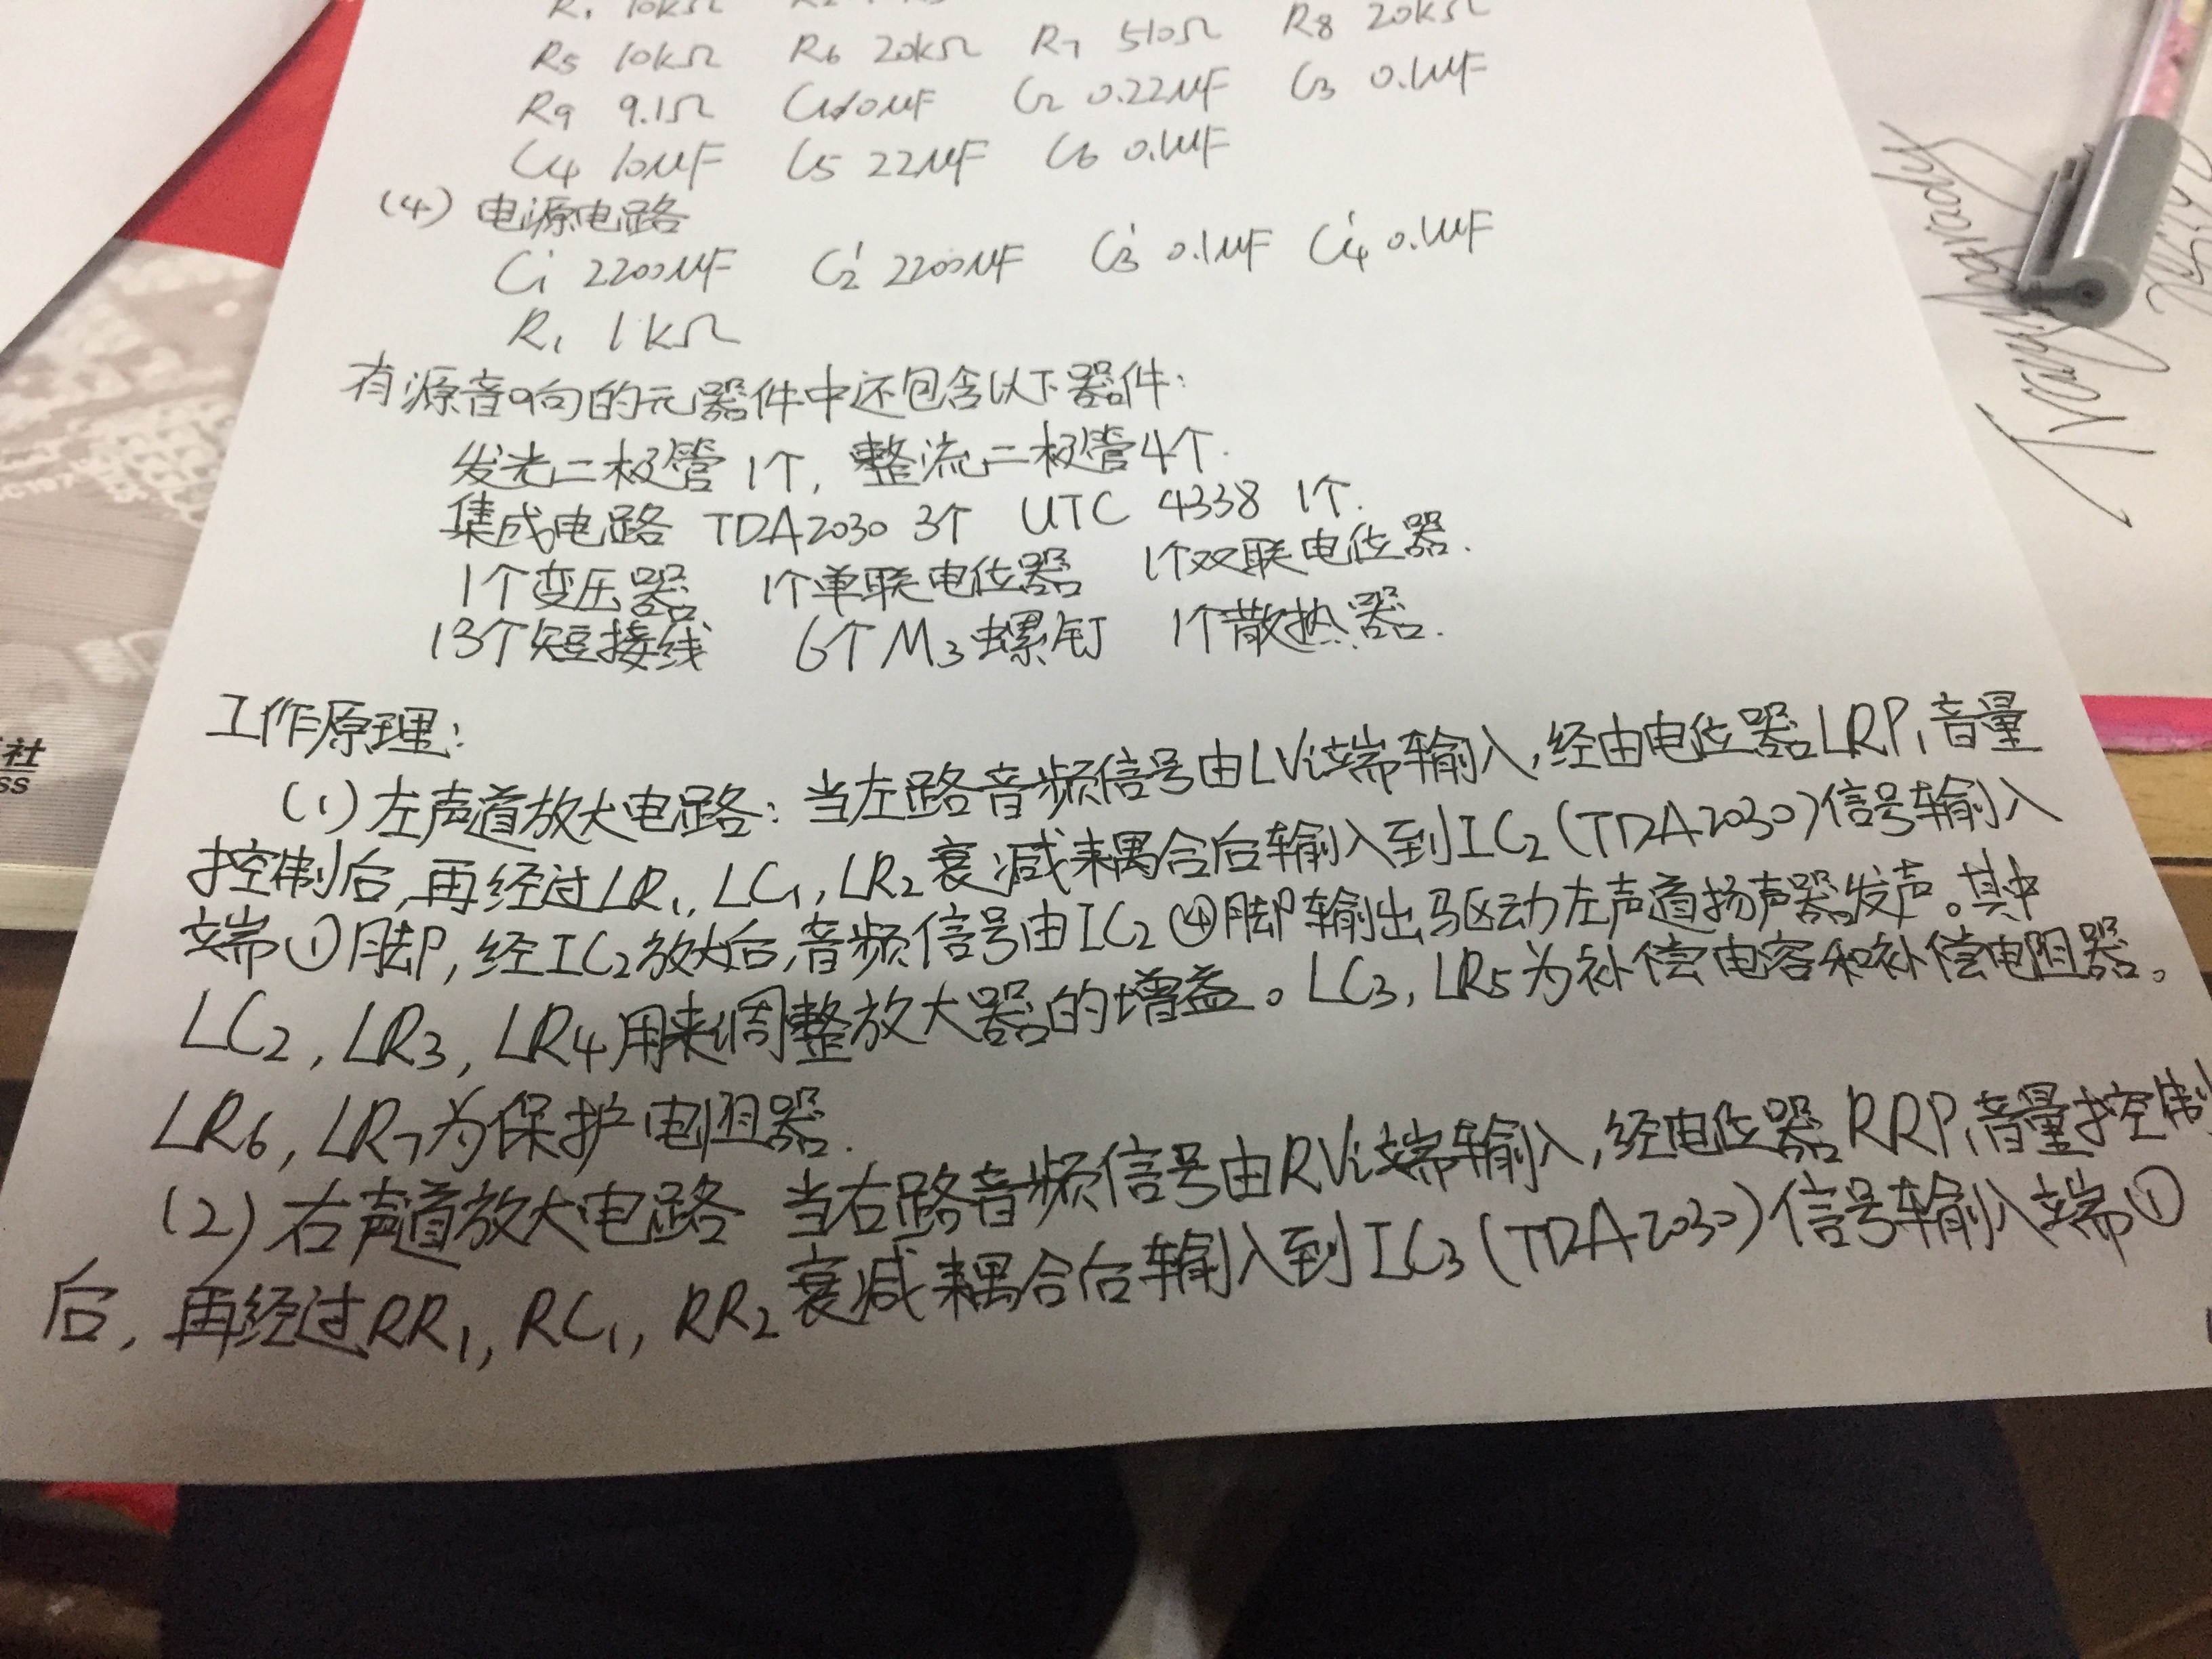 R₁ 10kΩ
R₅ 10kΩ R₆ 20kΩ R₇ 510Ω R₈ 20kΩ
R₉ 9.1Ω C₁ 10μF C₂ 0.22μF C₃ 0.1μF
C₄ 10μF C₅ 22μF C₆ 0.1μF
(4) 电源电路
C₁' 2200μF C₂' 2200μF C₃' 0.1μF C₄' 0.1μF
R₁ 1kΩ
有源音响的元器件中还包含以下器件:
发光二极管1个, 整流二极管4个.
集成电路 TDA2030 3个 UTC 4338 1个.
1个变压器 1个单联电位器 1个双联电位器.
13个短接线 6个M₃螺钉 1个散热器.
工作原理:
(1) 左声道放大电路: 当左路音频信号由LVi端输入, 经由电位器LRP₁音量
控制后, 再经过LR₁, LC₁, LR₂衰减耦合后输入到IC₂(TDA2030)信号输入
端①脚, 经IC₂放大后, 音频信号由IC₂④脚输出驱动左声道扬声器发声。其中
LC₂, LR₃, LR₄用来调整放大器的增益。LC₃, LR₅为补偿电容和补偿电阻器。
LR₆, LR₇为保护电阻器.
(2) 右声道放大电路 当右路音频信号由RVi端输入, 经电位器RRP₁音量控制
后, 再经过RR₁, RC₁, RR₂衰减耦合后输入到IC₃(TDA2030)信号输入端①
社
ss